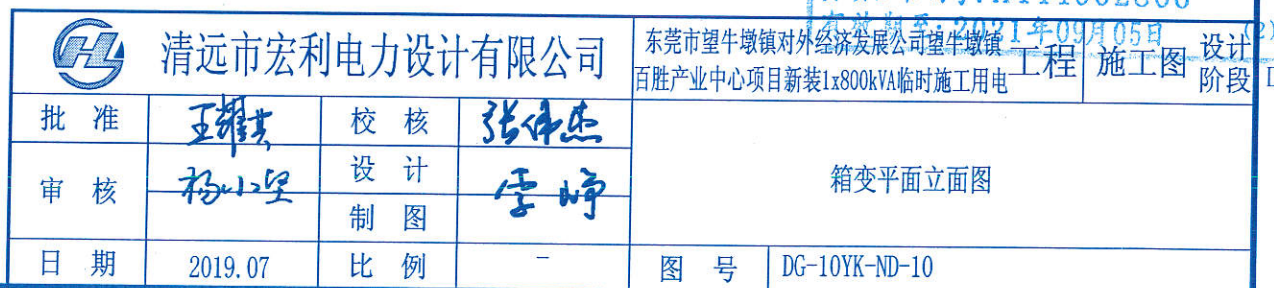 有效期至:2021年09月05日
清远市宏利电力设计有限公司
东莞市望牛墩镇对外经济发展公司望牛墩镇
百胜产业中心项目新装1x800kVA临时施工用电
工程 施工图 设计阶段
批准 王耀其 校核 张伟杰
审核 杨小坚 设计
制图
箱变平面立面图
日期 2019.07 比例 -
图号 DG-10YK-ND-10